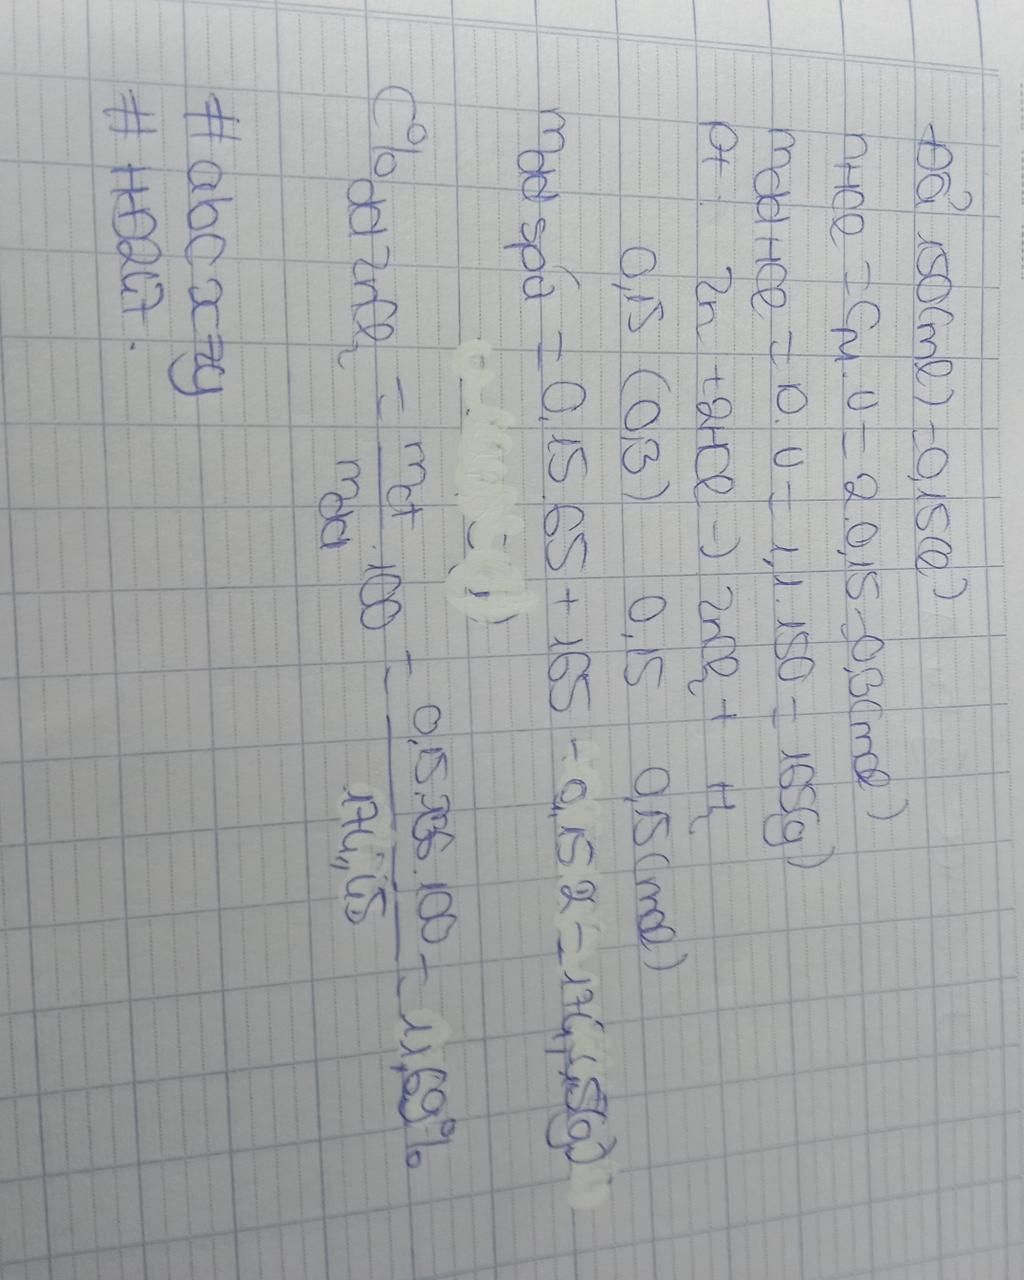 Đổi 150(ml) = 0,15(l)
nHCl = CM.V = 2.0,15 = 0,3(mol)
mdd HCl = D.V = 1,1.150 = 165(g)
Pt : Zn + 2HCl → ZnCl2 + H2
0,15 (0,3) 0,15 0,15(mol)
mdd spứ = 0,15.65 + 165 - 0,15.2 = 174,45(g)
C% dd ZnCl2 = mct/mdd .100 = 0,15.136.100/174,45 = 11,69%
# abcxzy
# HĐ217.